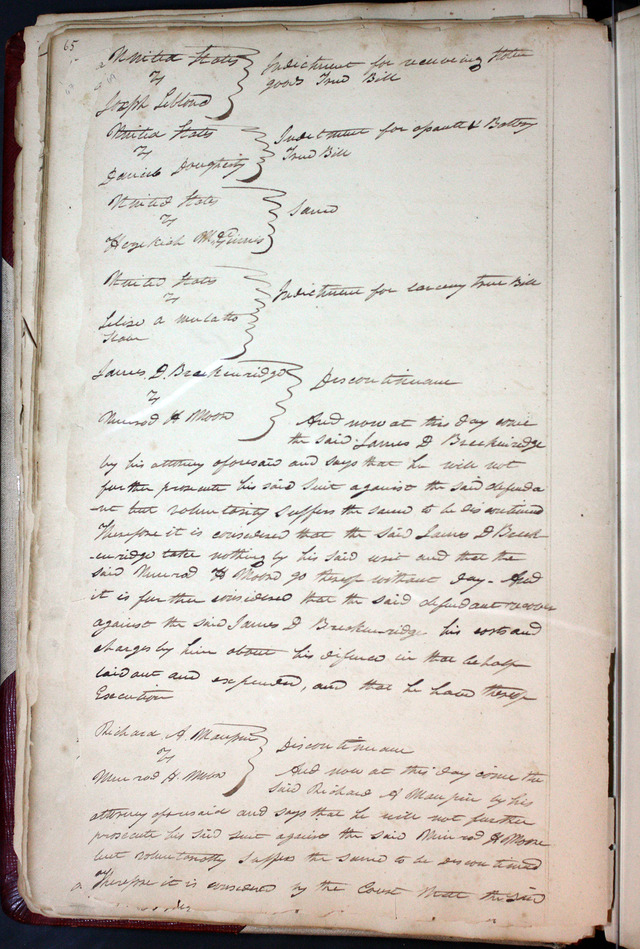 65
United States
vs
Joseph Leblond
Indictment for receiving stolen
goods True Bill
United States
vs
Daniel Dougherty
Indictment for assault & Battery
True Bill
United States
vs
Hezekiah
Same
United States
vs
a mulatto
Slave
Indictment for larceny true Bill
James D. Breckenridge
vs
Nimrod H Moon
Discontinuance
And now at this day come
the said James D Breckenridge
by his attorney aforesaid and says that he will not
further prosecute his said suit against the said defenda
nt but voluntarily suffers the same to be discontinued
Therefore it is considered that the said James D Breck
-enridge take nothing by his said writ and that the
said Nimrod H Moon go thereof without day - And
it is further considered that the said defendant recover
against the said James D Breckenridge his costs and
charges by him about his defence in that behalf
laid out and expended, and that he have thereof
Execution
Richard A. Maupin
vs
Nimrod H. Moon
Discontinuance
And now at this day come the
said Richard A Maupin by his
attorney aforesaid and says that he will not further
prosecute his said suit against the said Nimrod H Moore
but voluntarily suffers the same to be discontinued
Therefore it is considered by the Court that the said